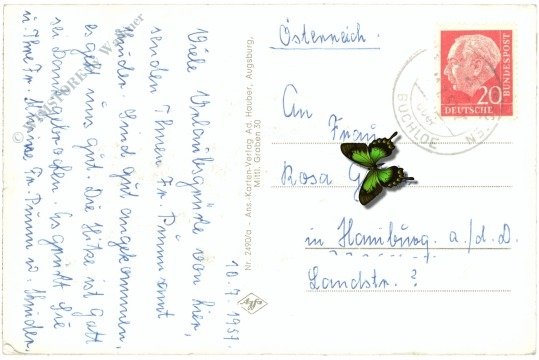 10.7.1957.
Viele Urlaubsgrüße von hier,
senden Ihnen Fr. Primm samt
Kinder. Sind gut angekommen,
es geht uns gut. Die Hitze ist Gott
sei Dank gebrochen. Es grüßt Sie
u. Ihre Fr. Fr. Primm u. Kinder.
Nr. 2490/a - Ans.-Karten-Verlag Ad. Houber, Augsburg,
Mittl. Graben 30
Agfa
Österreich.
An Frau
Rosa
in Hamburg a./d.D.
Landstr. ?
20
DEUTSCHE BUNDESPOST
BUCHLOE